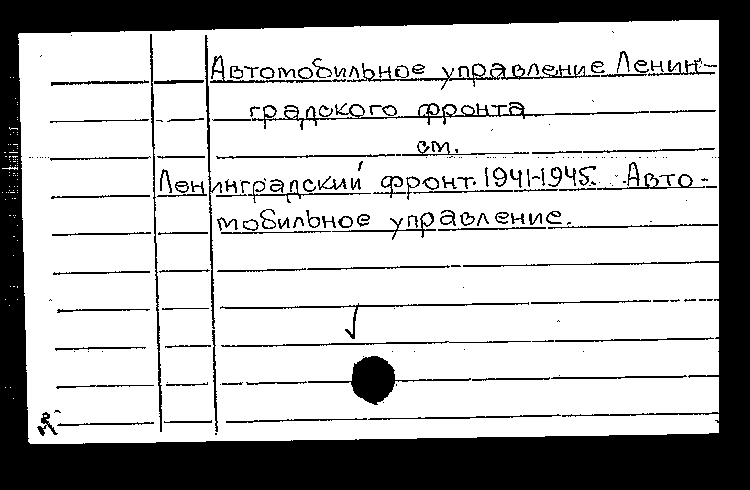 Автомобильное управление Ленин-
градского фронта
см.
Ленинградский фронт. 1941-1945. Авто-
мобильное управление.